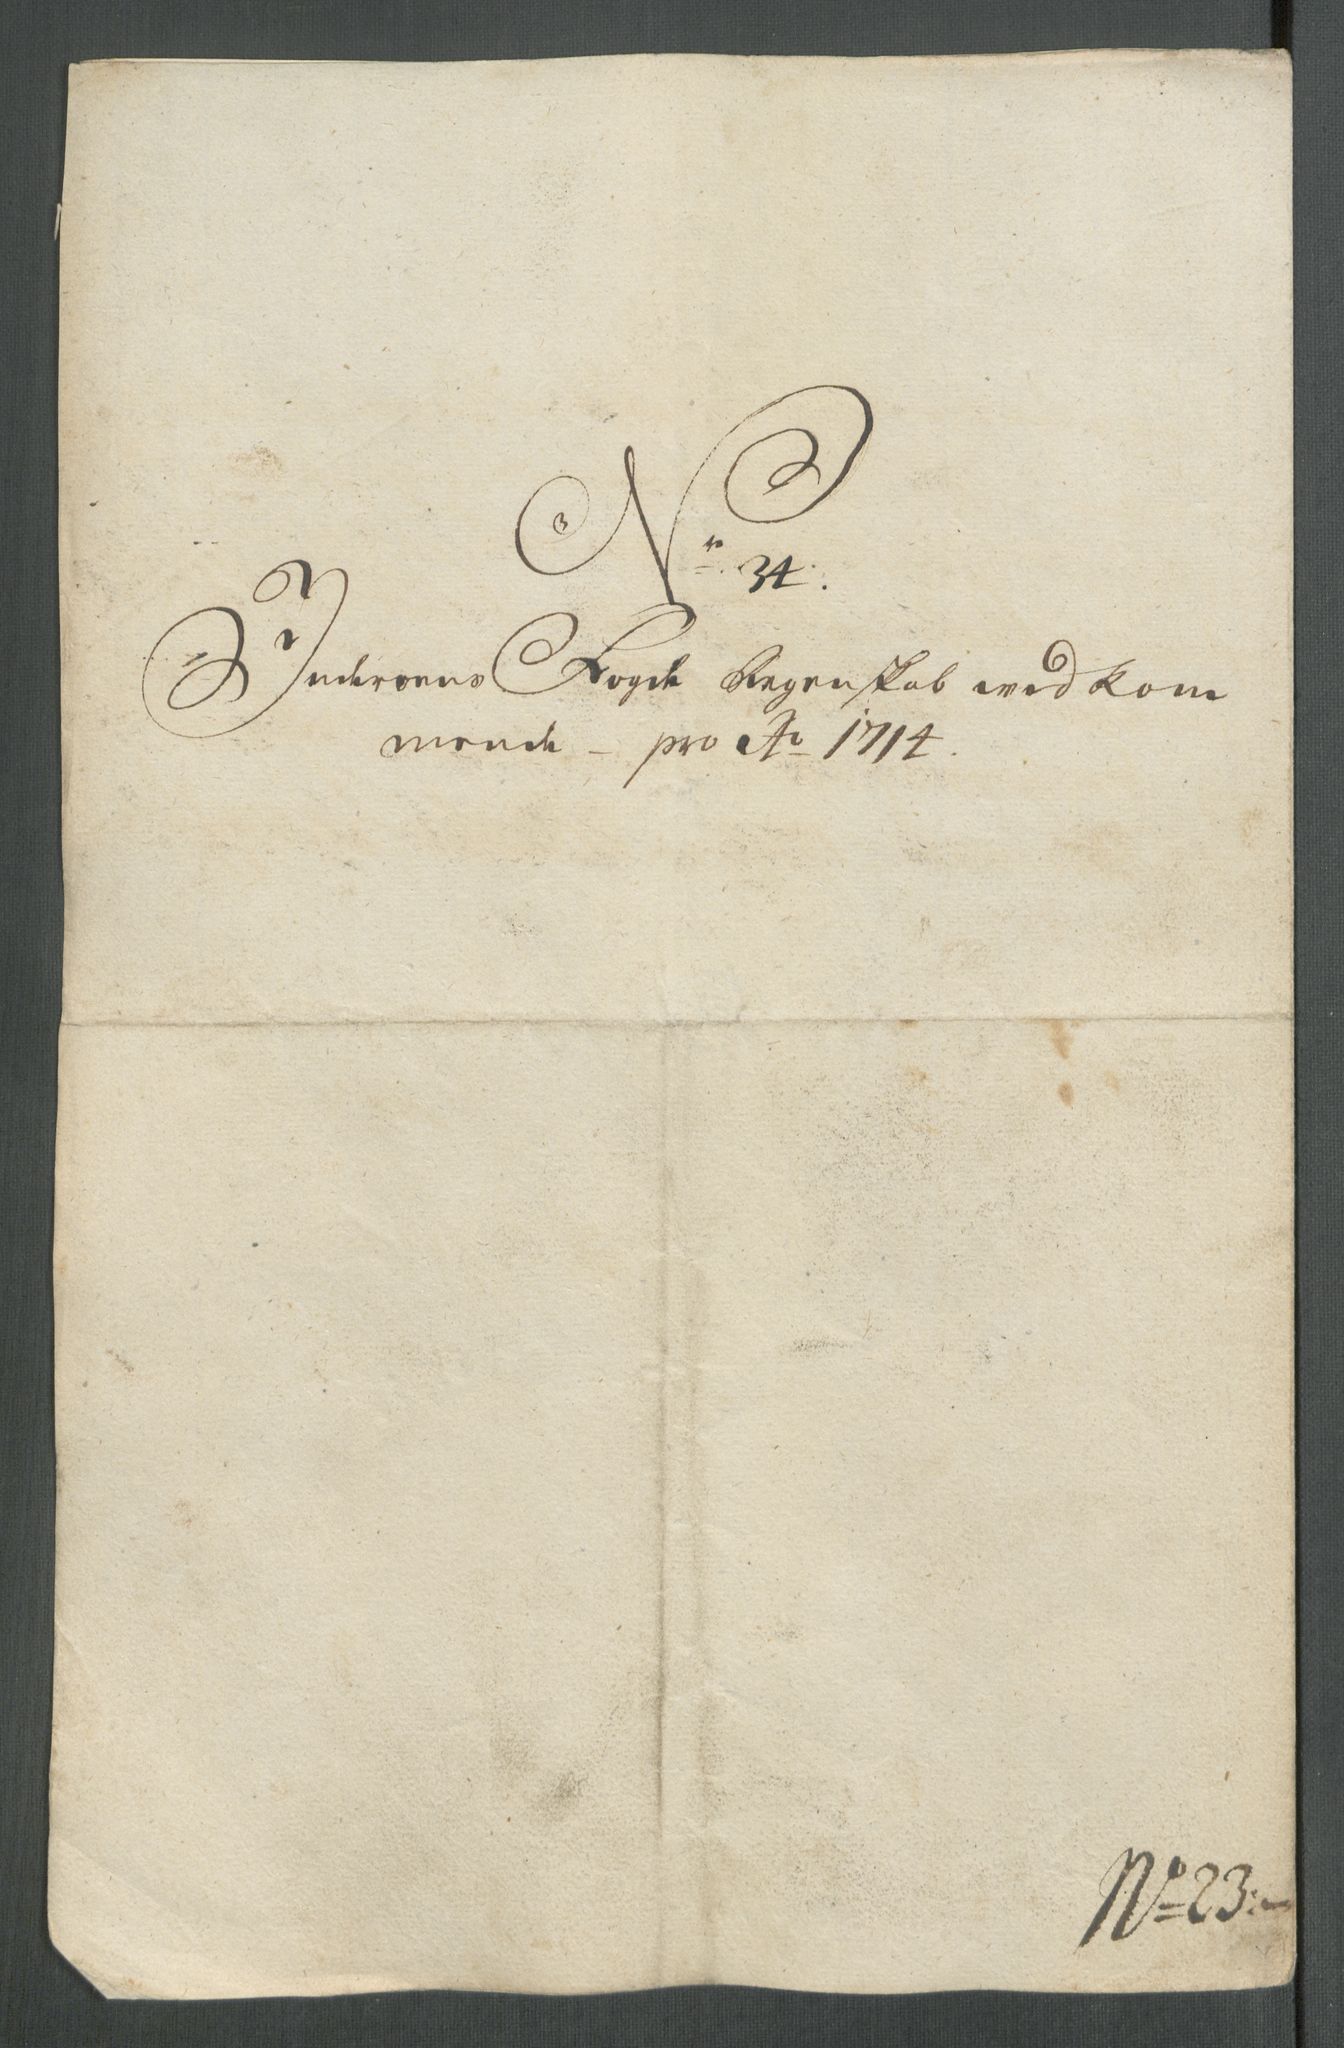 Nr. 34.
Inderøens Fogde Regenskab wed kom
mende - pro Ao 1714.
No 23: